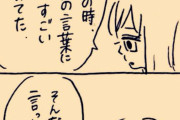 の時、
の言葉に
すごい
てた。
そんな
言っ